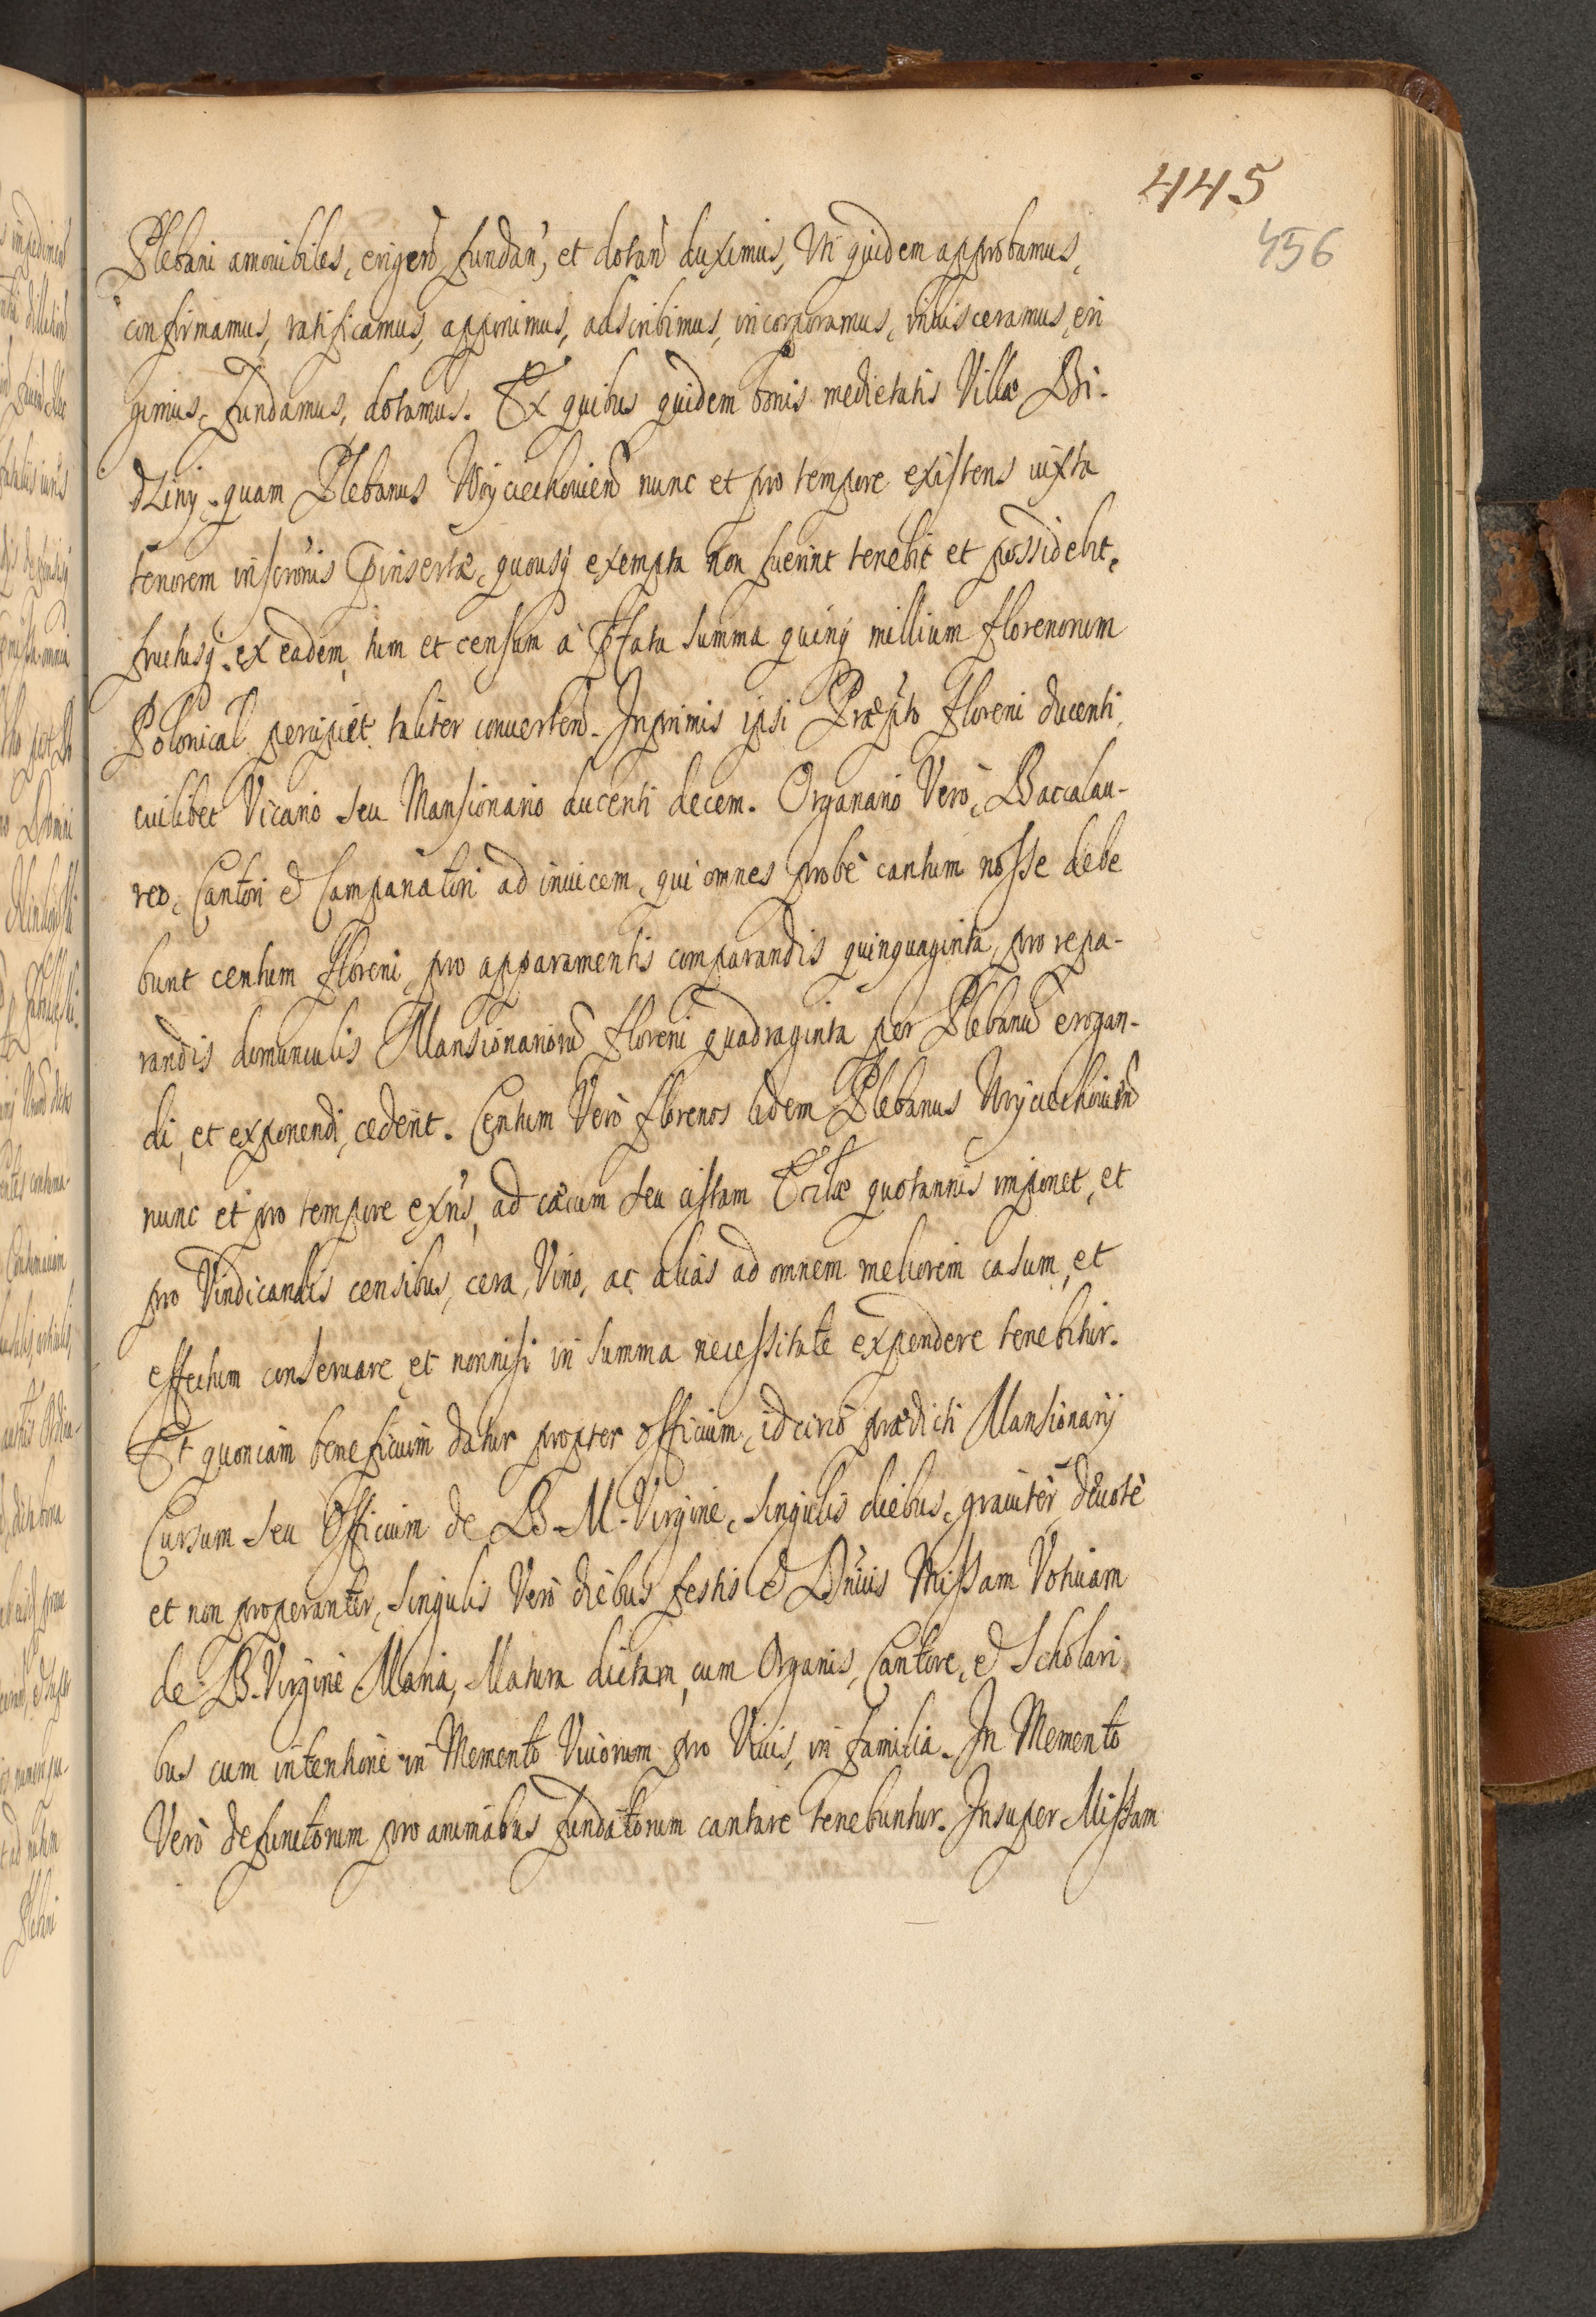 445
456
Plebani amovibiles, erigend fundan, et dotand duximus, Uti quidem approbamus,
confirmamus, ratificamus, apponimus, adscribimus, incorporamus, inuisceramus, eri
gimus, fundamus, dotamus. Ex quibus quidem bonis medietatis Villæ Bi-
dziny, quam Plebanus Woyciechovien nunc et pro tempore existens iuxta
tenorem inscrõnis pinsertæ, quousq exempta non fuerint tenebit et possidebit,
fructusq ex eadem, tum et censum à pfata summa quinq millium florenorum
Polonical percipiet taliter convertend. Inprimis ipsi Præpto floreni ducenti,
cuilibet Vicario seu Mansionario ducenti decem. Organario Verò, Baccalau-
reo, Cantori & Campanatori ad invicem, qui omnes probè cantum nosse debe
bunt centum floreni, pro apparamentis comparandis quinquaginta, pro repa-
randis domunculis Mansionariorũ floreni quadraginta per Plebanũ erogan-
di, et exponendi, cedent. Centum Verò florenos idem Plebanus Woyciechovien
nunc et pro tempore exñs, ad cæcum seu cistam Ecclæ quotannis imponet, et
pro Vindicandis censibus, cera, Vino, ac aliàs ad omnem meliorem casum, et
effectum conservare, et nonnisi in summa necessitate expendere tenebitur.
Et quoniam beneficium datur propter officium, idcirco prædicti Mansionarij
Cursum seu Officium de B. M. Virgine, singulis diebus, graviter, devotè
et non properanter, singulis Verò diebus festis & Dñicis Missam Votivam
de B. Virgine Maria, Matura dictam, cum Organis, Cantore, & Scholari
bus cum intentione in Memento Vivorum pro Vivis, in familia. In Memento
Verò defunctorum pro animabus fundatorum cantare tenebuntur. Insuper Missam